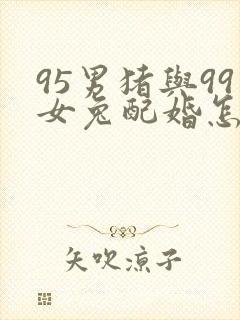 95男猪與99
女兔配婚怎
矢吹凉子